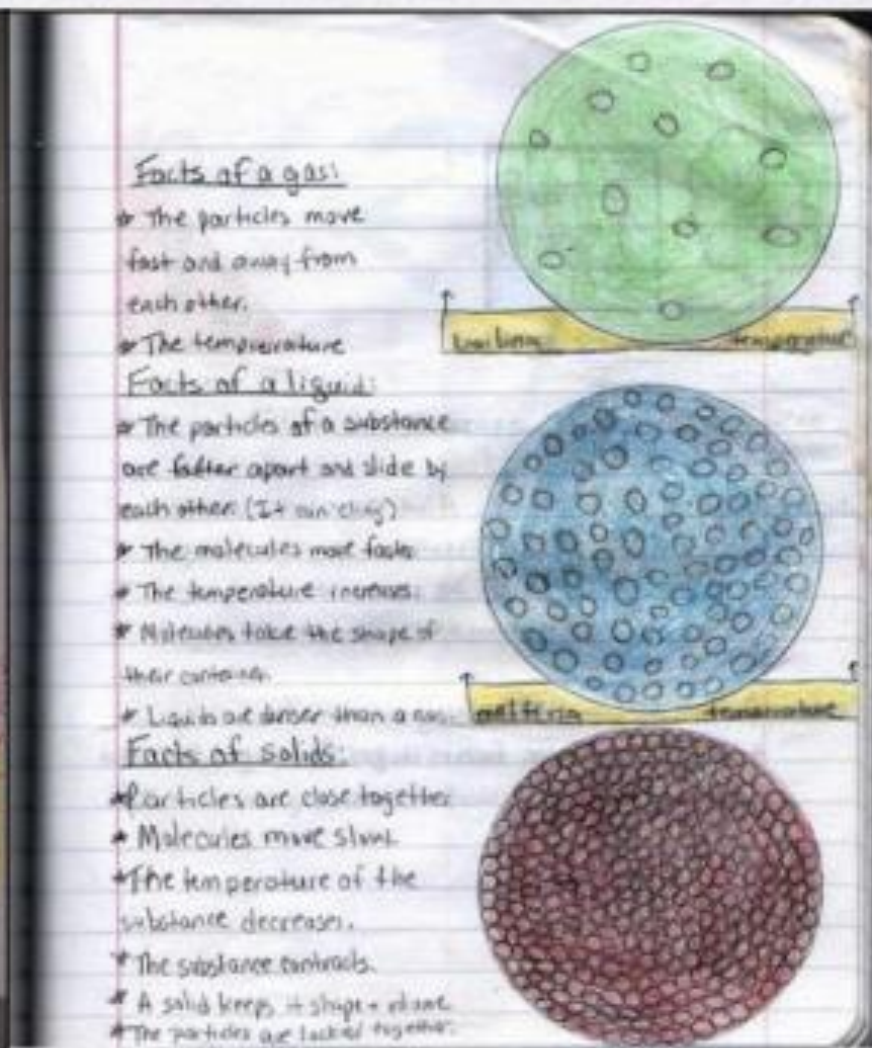 Facts of a gas:
* The particles move
fast and away from
each other.
* The temperature
boiling temperature
Facts of a liquid:
* The particles of a substance
are farther apart and slide by
each other. (It can cling)
* The molecules move faster
* The temperature increases.
* Molecules take the shape of
their container.
* Liquids are denser than a gas.
melting temperature
Facts of solids:
* Particles are close together
* Molecules move slow.
* The temperature of the
substance decreases.
* The substance contracts.
* A solid keeps it shape + volume
* The particles are locked together.